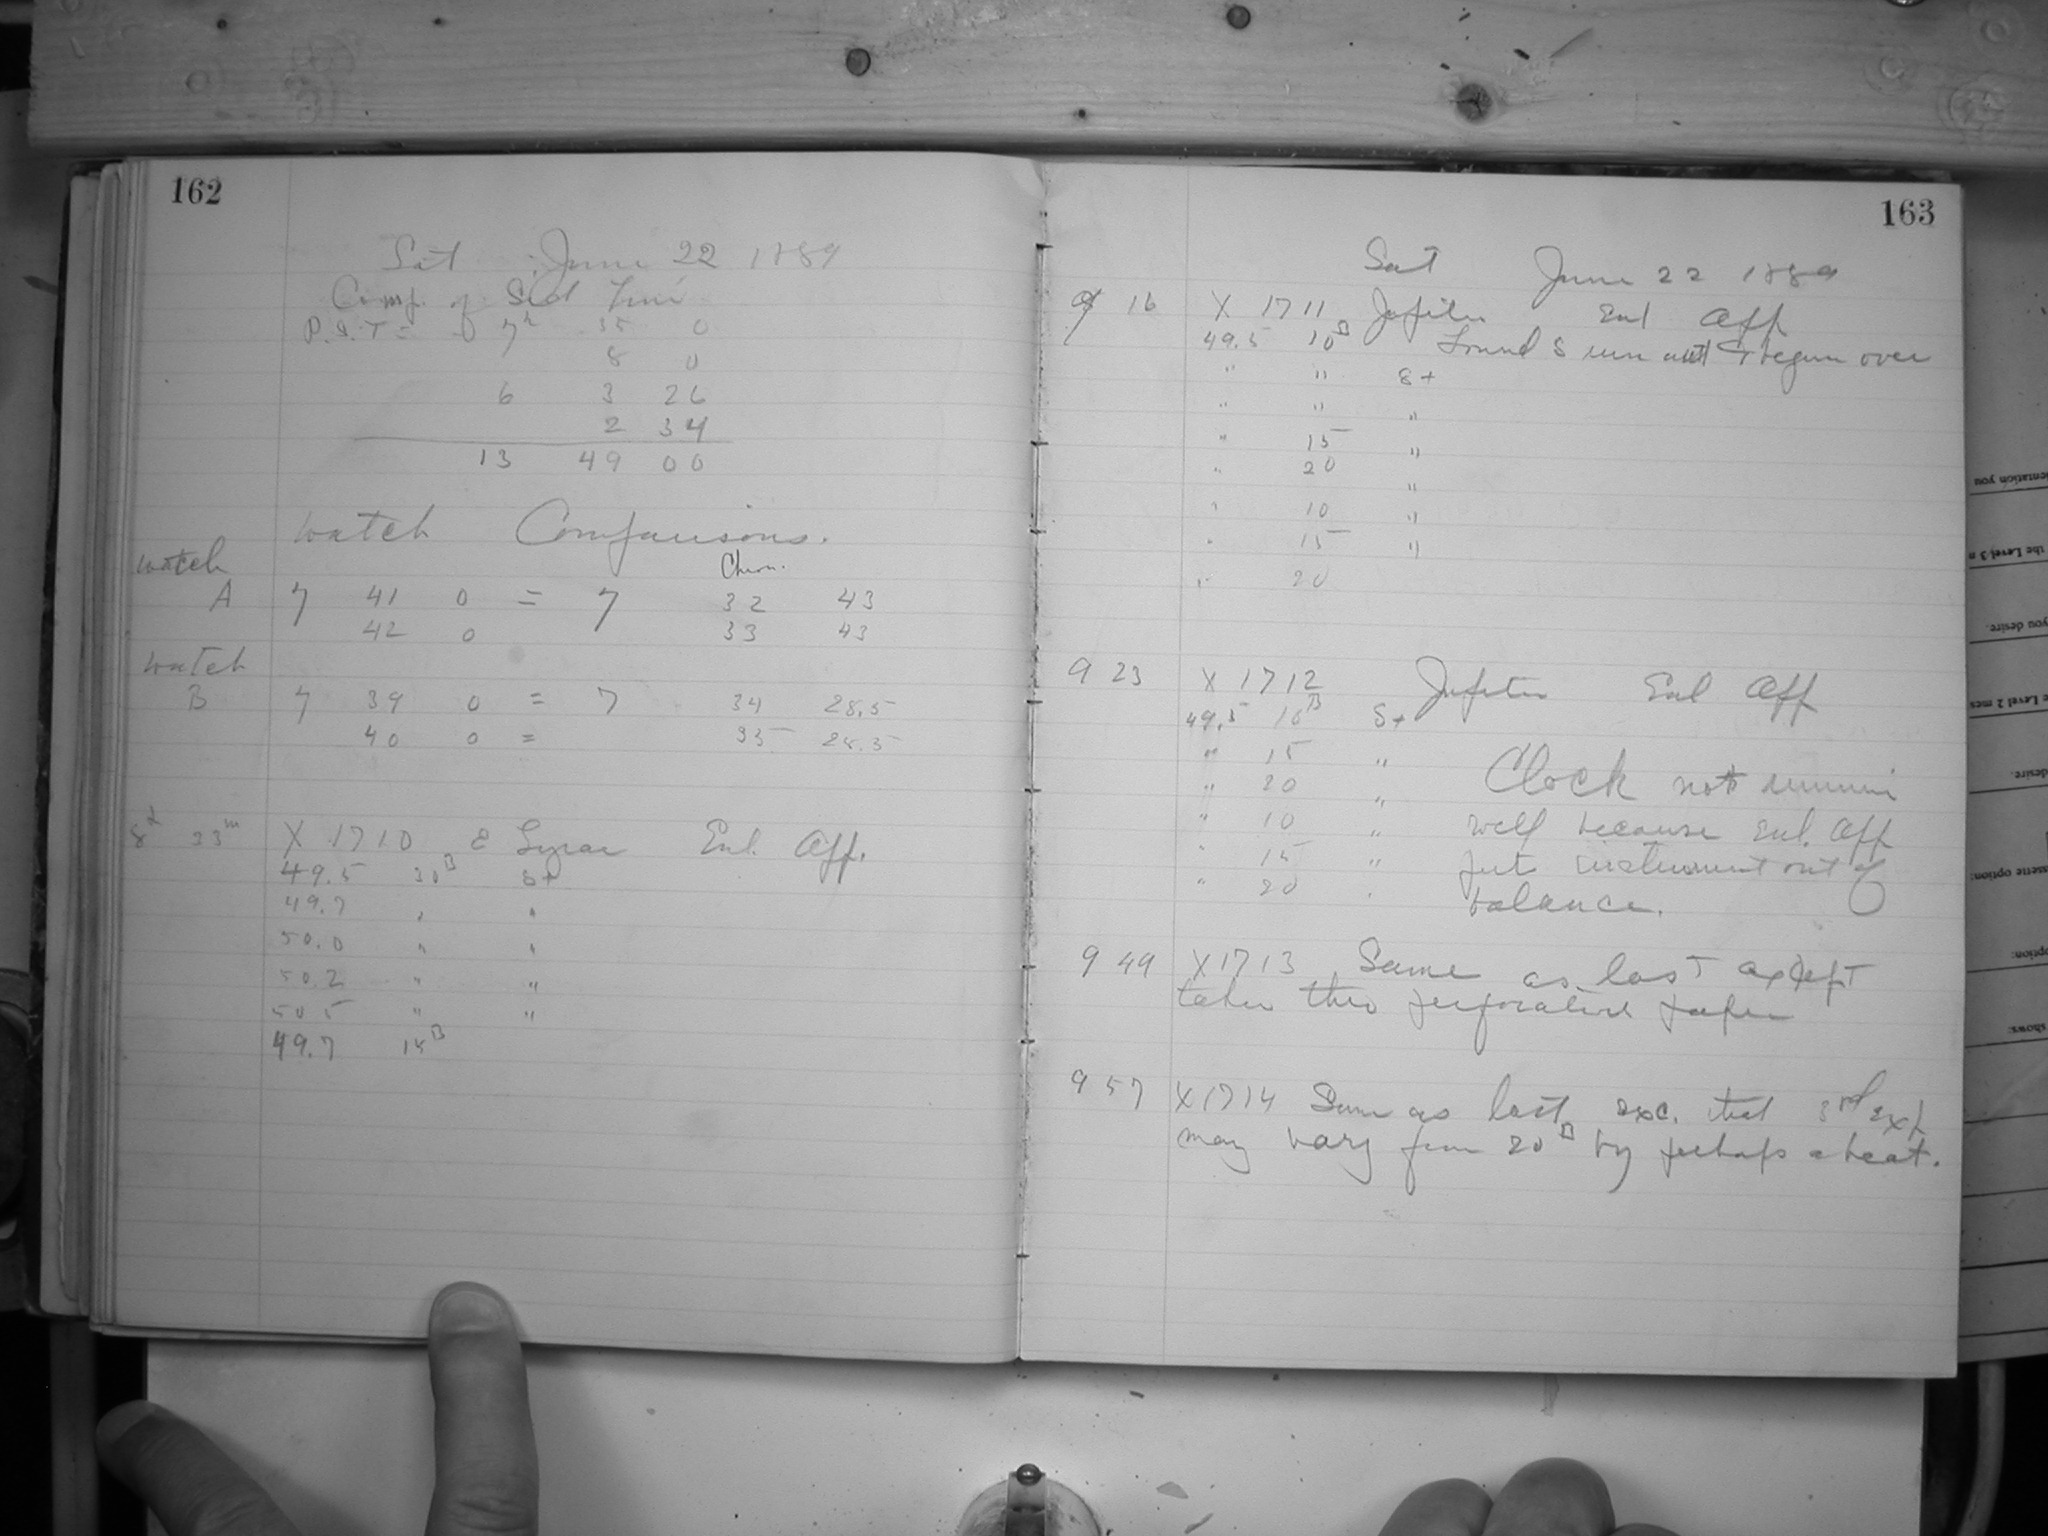 162
Sat June 22 1889
Comp. of Sid Time
P.S.T = 7h 35 0
8 0
6 3 26
2 34
13 49 00
Watch Comparisons.
Watch Chron.
A 7 41 0 = 7 32 43
42 0 33 43
Watch
B 7 39 0 = 7 34 28.5
40 0 = 35 28.5
8h 33m X 1710 ε Lyrae Enl. App.
49.5 30B S+
49.7 " "
50.0 " "
50.2 " "
50.5 " "
49.7 15B
163
Sat June 22 1889
9 16 X 1711 Jupiter Enl App
49.5 10B Found S run out & began over
" " S+
" " "
" 15 "
" 20 "
" 10 "
" 15 "
" 20
9 23 X 1712 Jupiter Enl App
49.5 10B S+
" 15 "
" 20 " Clock not runnin
" 10 " well because Enl. App
" 15 " put instrument out of
" 20 " balance.
9 49 X1713 Same as last except
taken thro perforated paper
9 57 X1714 Same as last, exc. that 3rd exp
may vary from 20B by perhaps a beat.